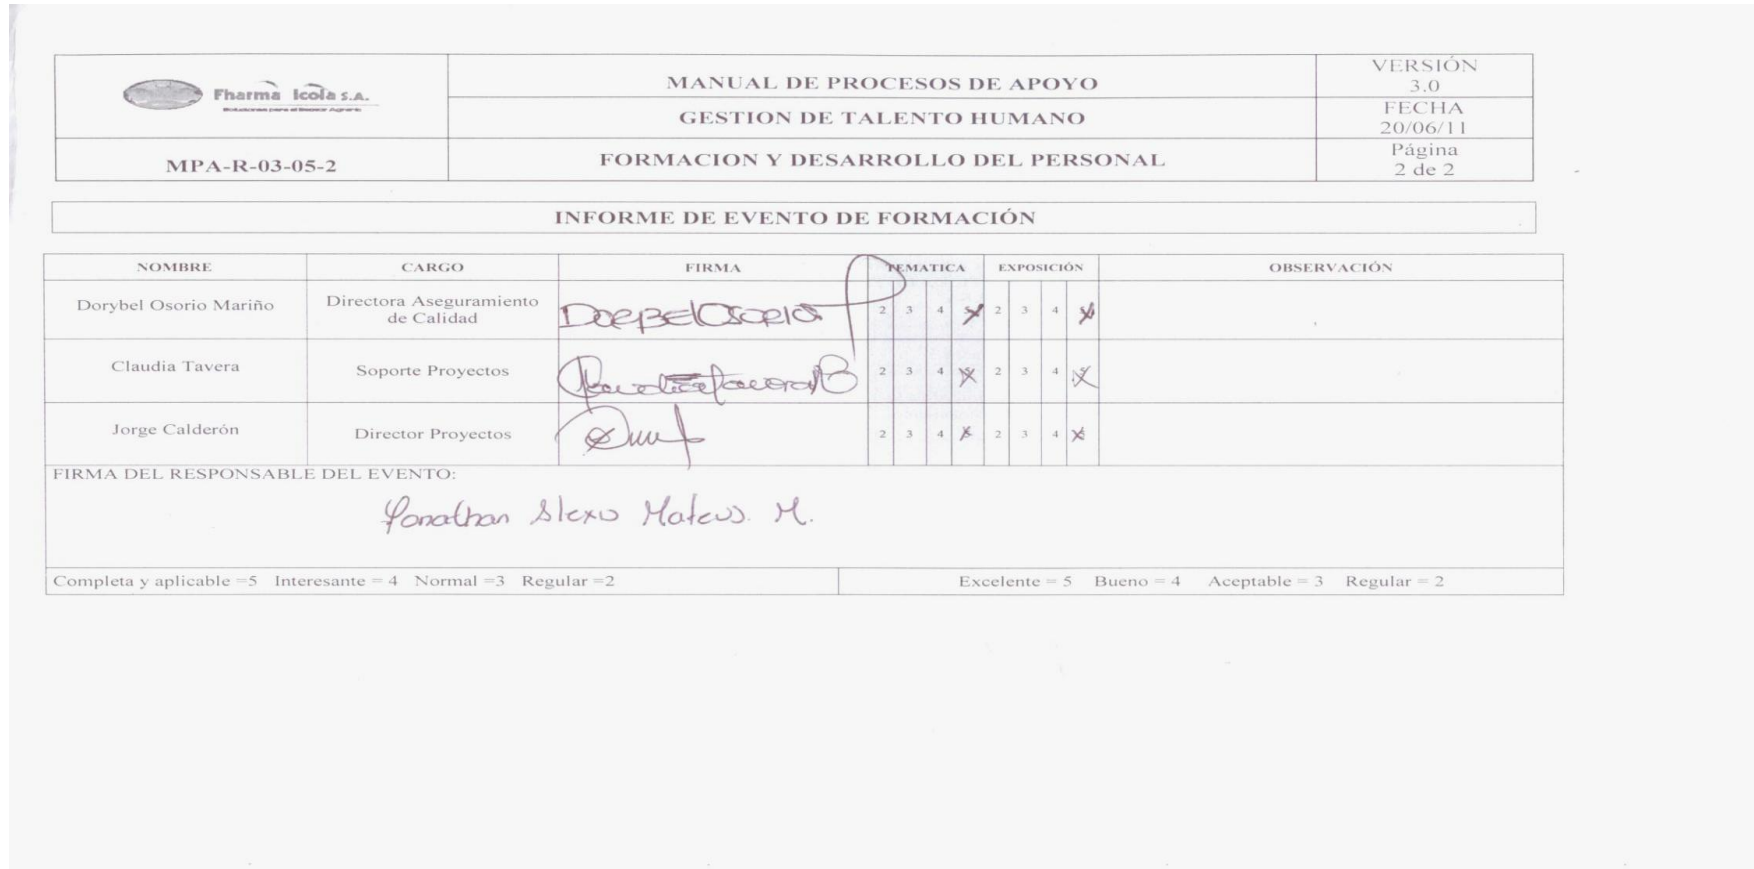 Fharma Icola S.A.
MANUAL DE PROCESOS DE APOYO
VERSIÓN
3.0
GESTION DE TALENTO HUMANO
FECHA
20/06/11
MPA-R-03-05-2
FORMACION Y DESARROLLO DEL PERSONAL
Página
2 de 2
INFORME DE EVENTO DE FORMACIÓN
NOMBRE CARGO FIRMA TEMATICA EXPOSICIÓN OBSERVACIÓN
Dorybel Osorio Mariño Directora Aseguramiento
de Calidad
2 3 4 5 2 3 4 5
Claudia Tavera Soporte Proyectos 2 3 4 5 2 3 4 5
Jorge Calderón Director Proyectos 2 3 4 5 2 3 4 5
FIRMA DEL RESPONSABLE DEL EVENTO:
Mateus. M.
Completa y aplicable =5 Interesante = 4 Normal =3 Regular =2 Excelente = 5 Bueno = 4 Aceptable = 3 Regular = 2